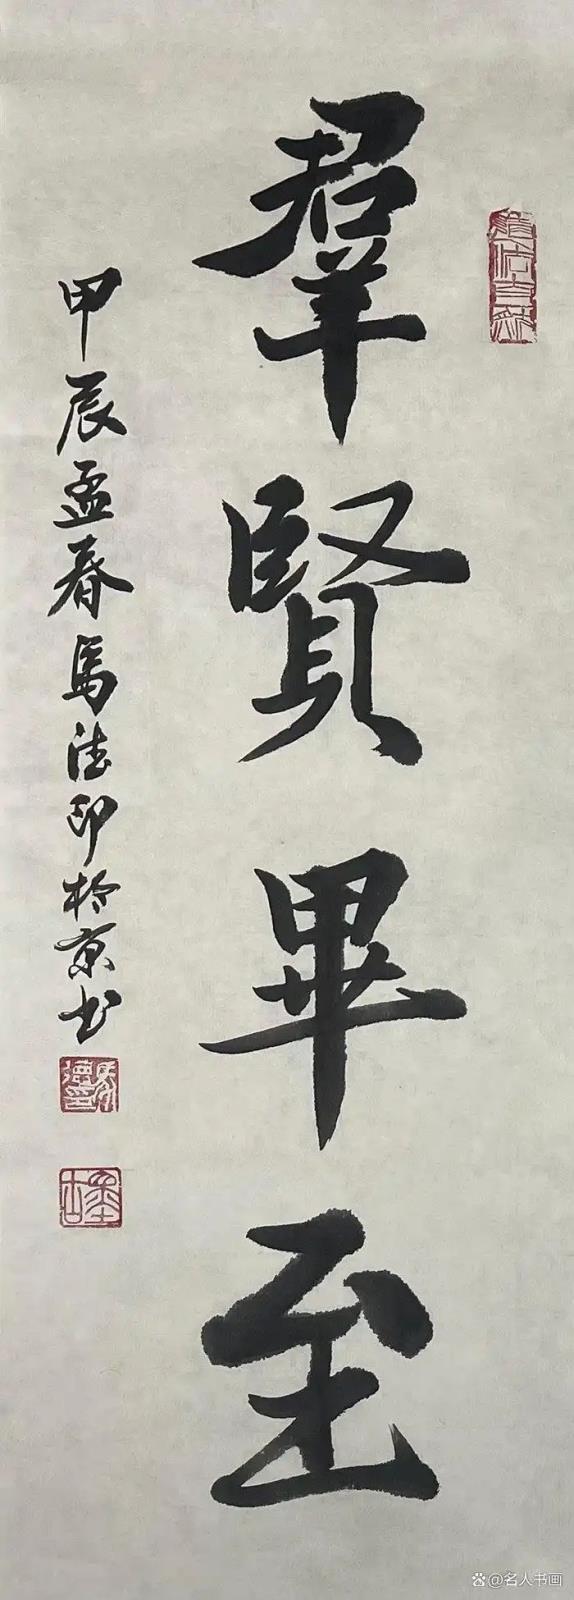 羣賢畢至
甲辰孟春馬德印於京书
@名人书画